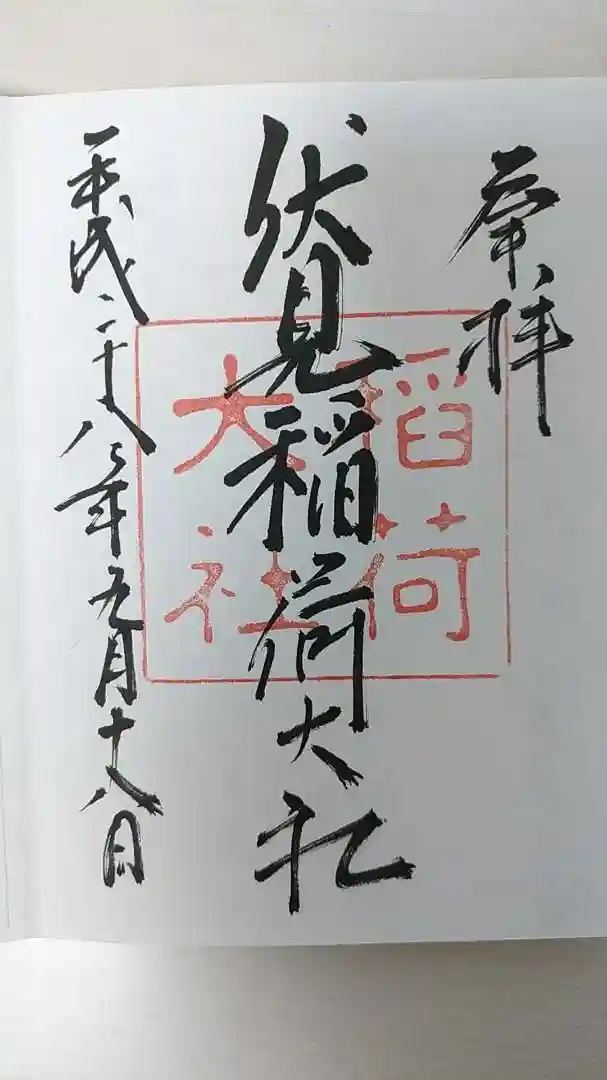 奉拝
伏見稲荷大社
平成二十八年九月十八日
稲荷
大社